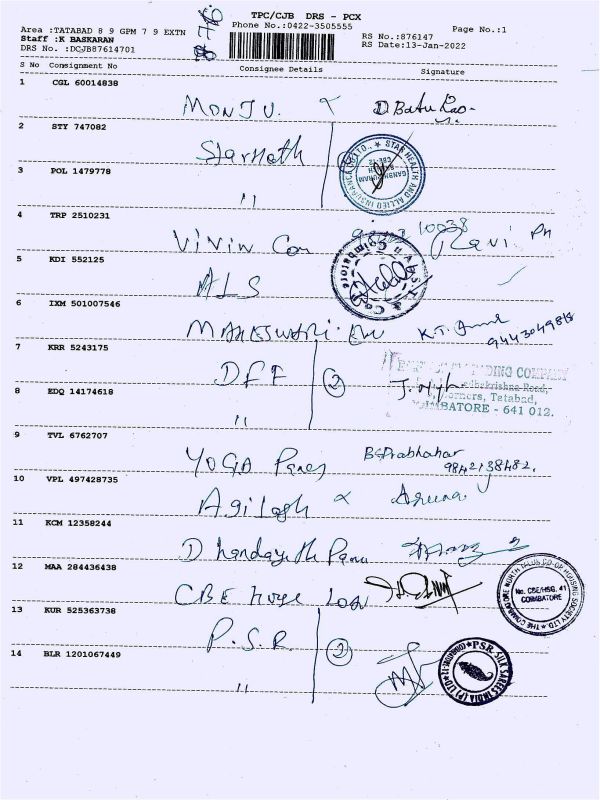 TPC/CJB DRS - PCX
Phone No.:0422-3505555
Area :TATABAD 8 9 GPM 7 9 EXTN
Staff :K BASKARAN
DRS No. :DCJB87614701
RS No.:876147
RS Date:13-Jan-2022
Page No.:1
S No Consignment No Consignee Details Signature
1 CGL 60014838
MONJU. D Batu Rao
2 STY 747082
Starhath
STAR HEALTH AND ALLIED INSURANCE
3 POL 1479778
"
4 TRP 2510231
VIVIN Con Ravi Ph
5 KDI 552125
ALS
6 IXM 501007546
MAHESWARI K.T. 9443049818
7 KRR 5243175
DFF 2
TRADING COMPANY
Road,
Corners, Tatabad,
COIMBATORE - 641 012.
8 EDQ 14174618
"
9 TVL 6762707
YOGA B.Prabhahar
9842138482.
10 VPL 497428735
Agilash Aruna
11 KCM 12358244
Dhandayuth Pani
12 MAA 284436438
CBE huse Loan
THE COIMBATORE NORTH CO-OP HOUSING SOCIETY LTD.
No. CBE/HSG. 41
COIMBATORE
13 KUR 525363738
P.S.R. 2
14 BLR 1201067449
"
PSR SILK SAREES INDIA (P) LTD